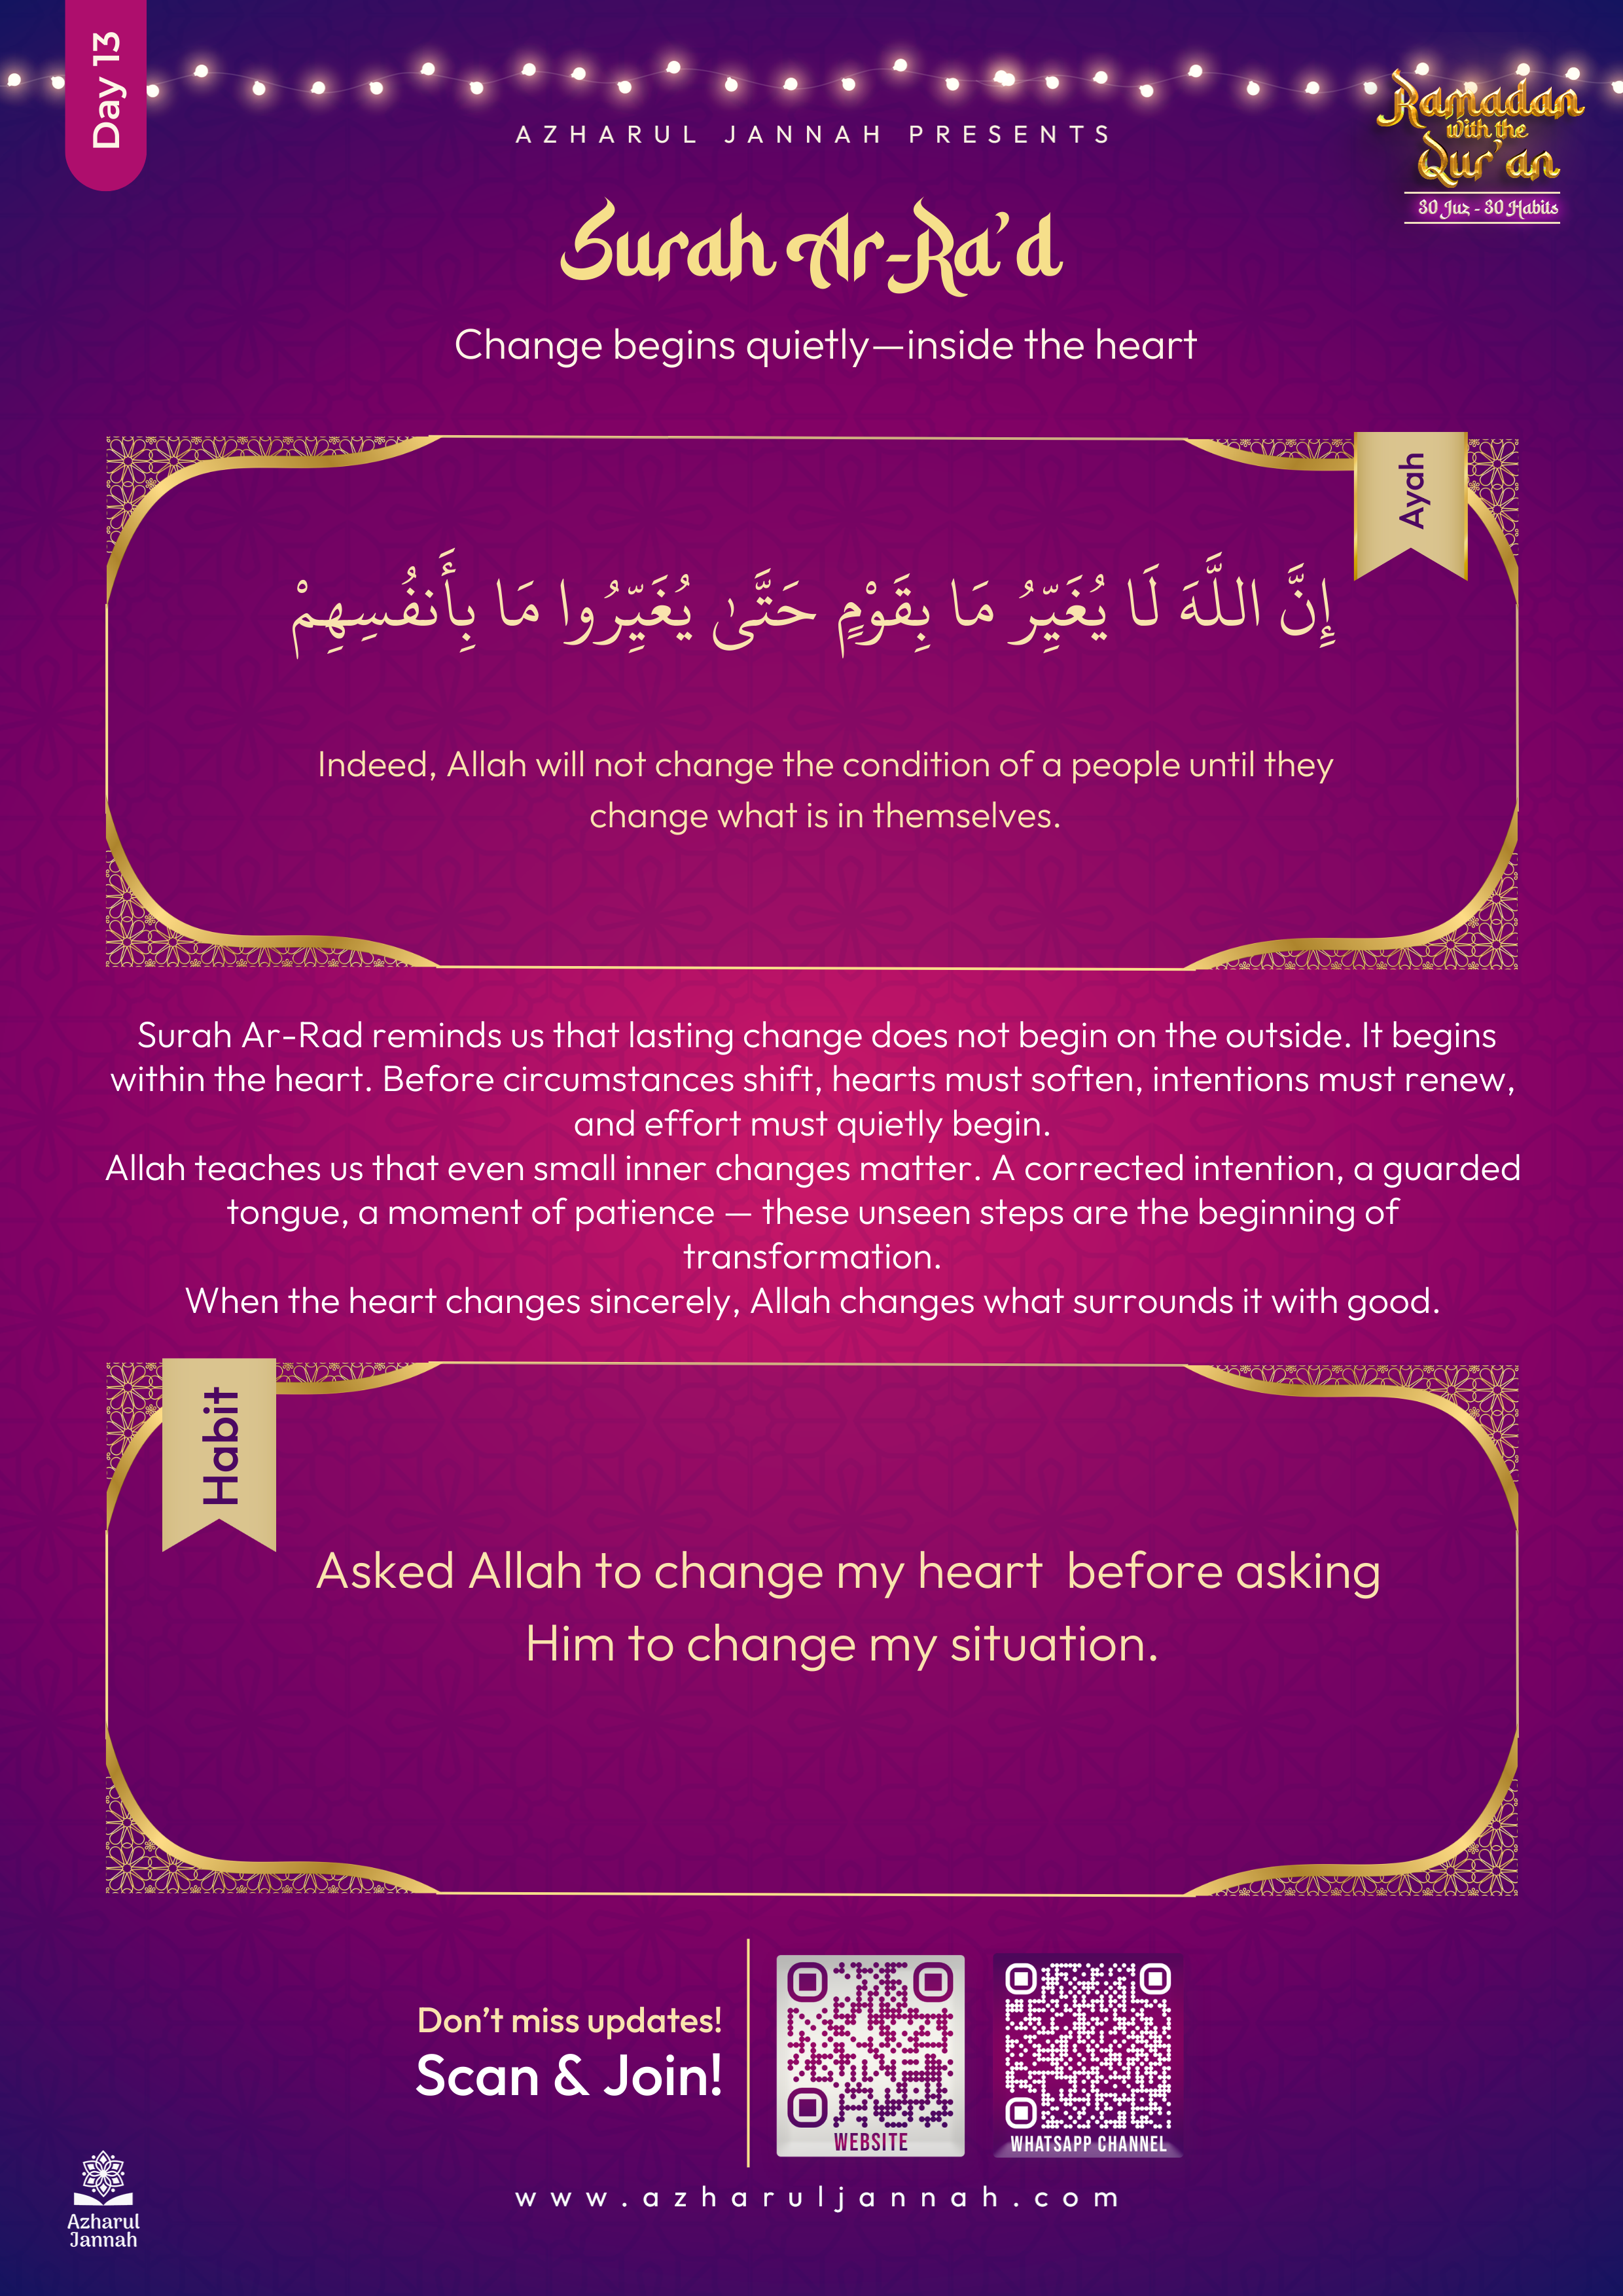 Day 13
AZHARUL JANNAH PRESENTS
Ramadan
with the
Qur'an
30 Juz - 30 Habits
Surah Ar-Ra'd
Change begins quietly—inside the heart
Ayah
إِنَّ اللَّهَ لَا يُغَيِّرُ مَا بِقَوْمٍ حَتَّىٰ يُغَيِّرُوا مَا بِأَنفُسِهِمْ
Indeed, Allah will not change the condition of a people until they
change what is in themselves.
Surah Ar-Rad reminds us that lasting change does not begin on the outside. It begins
within the heart. Before circumstances shift, hearts must soften, intentions must renew,
and effort must quietly begin.
Allah teaches us that even small inner changes matter. A corrected intention, a guarded
tongue, a moment of patience — these unseen steps are the beginning of
transformation.
When the heart changes sincerely, Allah changes what surrounds it with good.
Habit
Asked Allah to change my heart  before asking
Him to change my situation.
Don't miss updates!
Scan & Join!
WEBSITE
WHATSAPP CHANNEL
www.azharuljannah.com
Azharul
Jannah